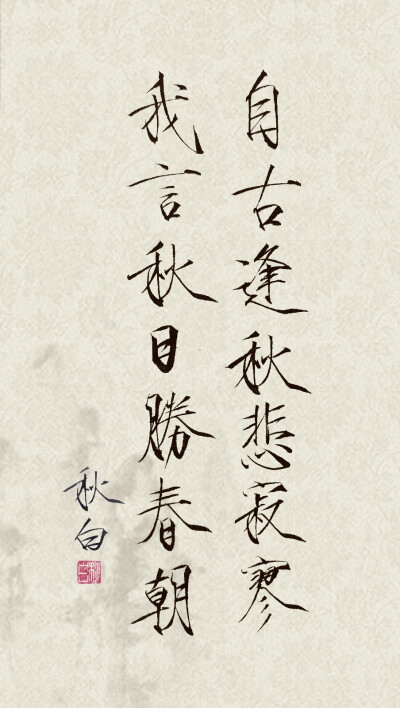 自古逢秋悲寂寥
我言秋日勝春朝
秋白